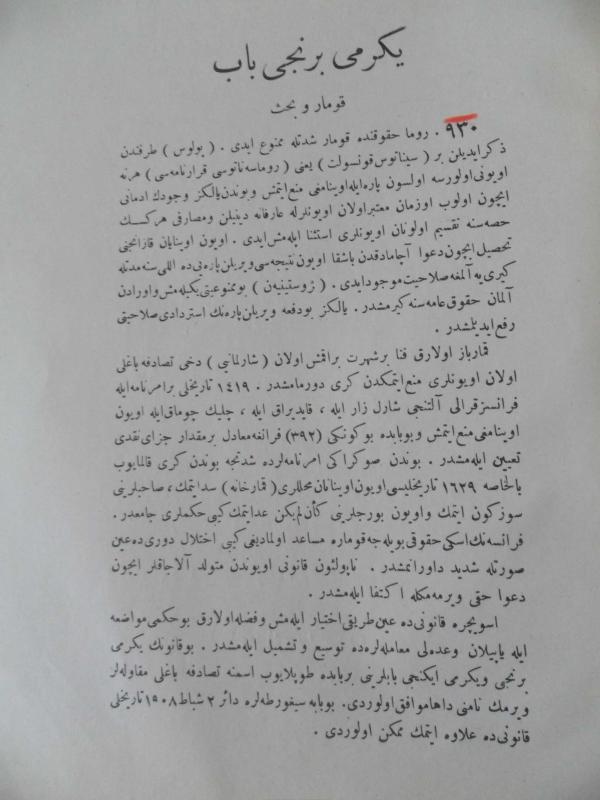 یکرمی برنجی باب
قومار و بحث
۹۳۰ . روما حقوقنده قومار شدتله ممنوع ایدی . ( پولوس ) طرفندن
ذکر ایدیلن بر ( سیناتوس قونسولت ) یعنی ( روما سه ناتوسی قرارنامه سی ) هر نه
اویونی اولورسه اولسون پاره ایله اوینامغی منع ایتمش و بوندن یالکز وجودك ادمانی
ایچون اولوب اوزمان معتبر اولان اویونلرله عارفانه دینیلن ومصارفی هرکسك
حصه سنه تقسیم اولونان اویونلری استثنا ایله مش ایدی . اویون اوینایان قازانجی
تحصیل ایچون دعوا آچامادقدن باشقا اویون نتیجه سی ویریلن پاره یی ده اللی سنه مدتله
کیری یه آلمغه صلاحیت موجود ایدی . ( ژوستینیه ن ) بو ممنوعیتی یکیله مش واورادن
آلمان حقوق عامه سنه کیرمشدر . یالکز بودفعه ویریلن پاره نك استردادی صلاحیتی
رفع ایدیلمشدر .
قمارباز اولارق فنا بر شهرت براقمش اولان ( شارلمانی ) دخی تصادفه باغلی
اولان اویونلری منع ایتمکدن کری دورمامشدر . ۱٤۱۹ تاریخلی بر امرنامه ایله
فرانسز قرالی آلتنجی شارل زار ایله ، قایدیراق ایله ، چلیك چوماق ایله اویون
اوینامغی منع ایتمش و بوبابده بوکونکی (۳۹۲) فرانغه معادل بر مقدار جزای نقدی
تعیین ایله مشدر . بوندن صوکراکی امرنامه لرده شدتجه بوندن کری قالمایوب
بالخاصه ۱٦۲۹ تاریخلیسی اویون اوینانان محللری ( قمارخانه ) سد ایتمك ، صاحبلرینی
سوزکون ایتمك واویون بورجلرینی کأن لم یکن عد ایتمك کبی حکملری جامعدر .
فرانسه نك اسکی حقوقی بویله جه قوماره مساعد اولمادیغی کبی اختلال دوری ده عین
صورتله شدید داورانمشدر . ناپولئون قانونی اویوندن متولد آلاجاقلر ایچون
دعوا حقی ویرمه مکله اکتفا ایله مشدر .
اسویچره قانونی ده عین طریقی اختیار ایله مش وفضله اولارق بوحکمی مواضعه
ایله یاپیلان وعده لی معامله لره ده توسیع و تشمیل ایله مشدر . بوقانونك یکرمی
برنجی ویکرمی ایکنجی بابلرینی بر بابده طوپلایوب اسمنه تصادفه باغلی مقاوله لر
ویرمك نامنی داها موافق اولوردی . بوبابه سیغورطه لره دائر ۲ شباط ۱۵۰۸ تاریخلی
قانونی ده علاوه ایتمك ممکن اولوردی .